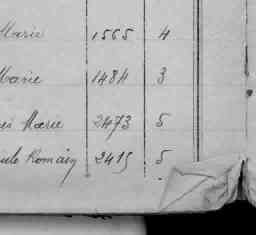 Marie 1565 4
Marie 1484 3
Marie 2473 5
Romain 2415 5